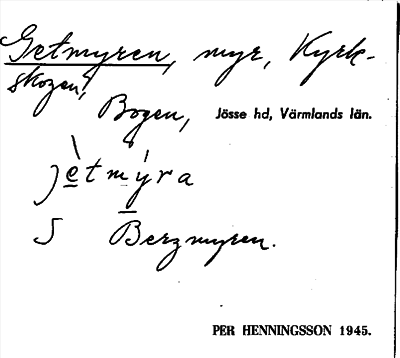 Getmyren, myr, Kyrk-
skogen,
Bogen, Jösse hd, Värmlands län.
jètmýra
S Bergmyren.
PER HENNINGSSON 1945.